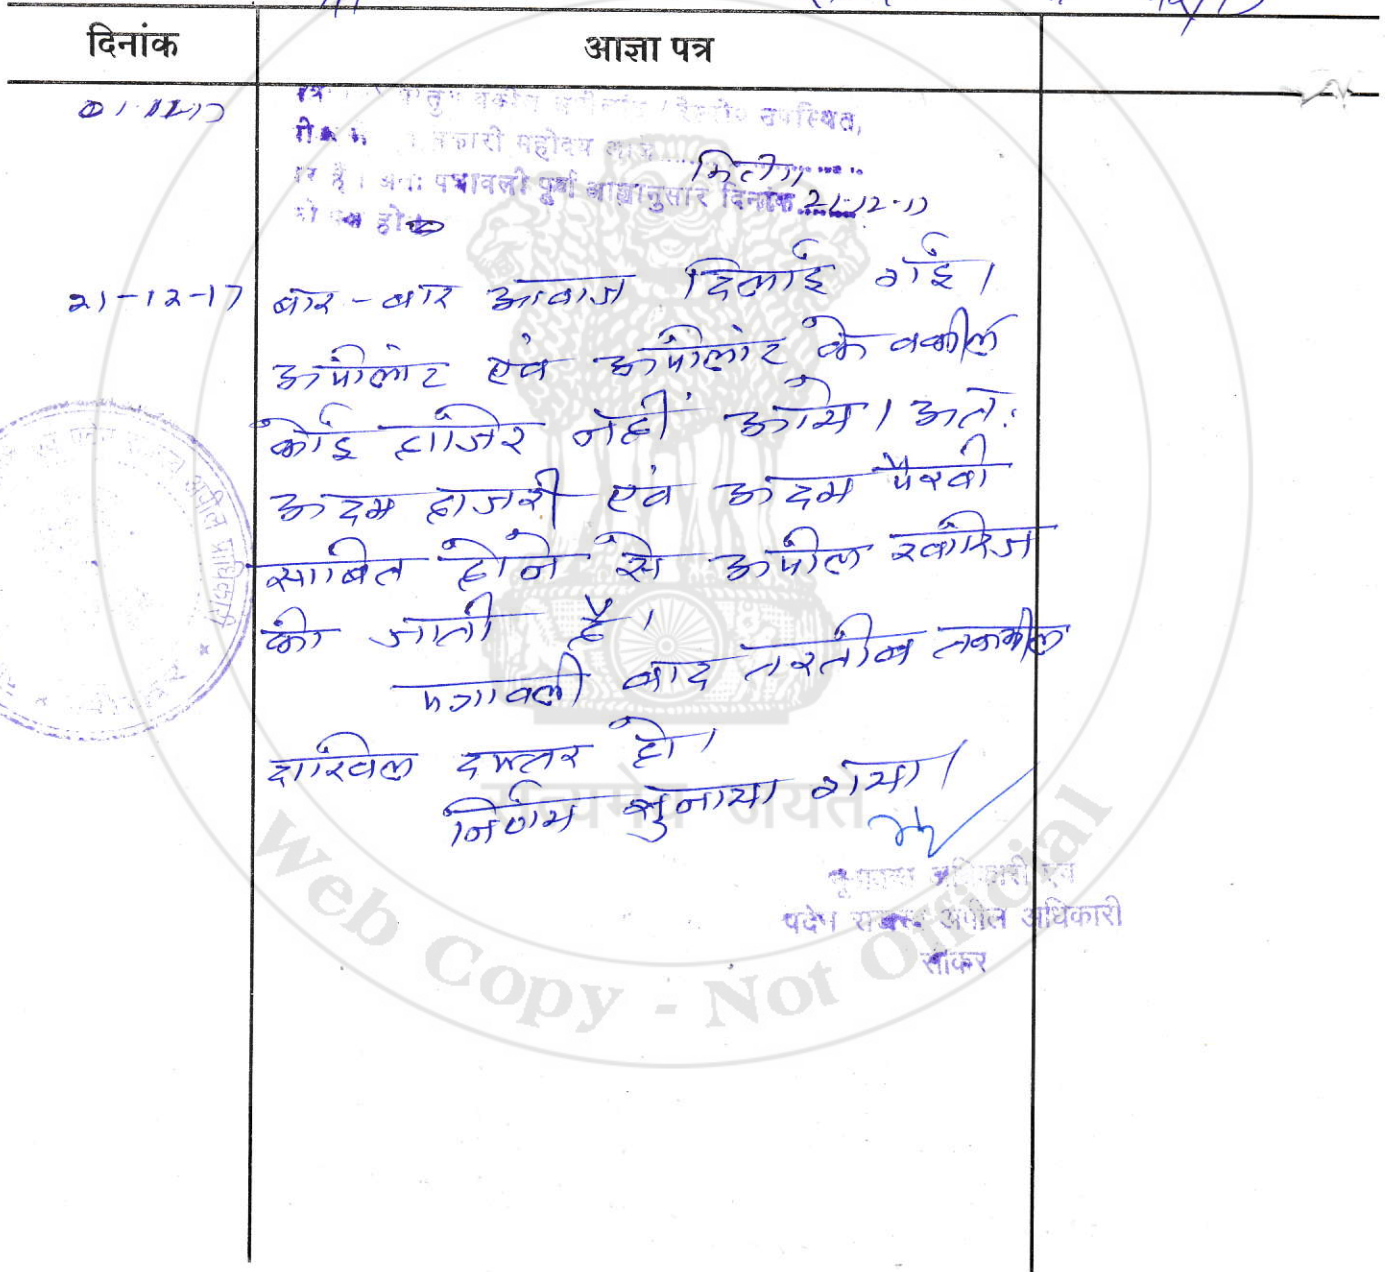 दिनांक आज्ञा पत्र
उपस्थित,
महोदय मिटींग
पत्रावली पूर्व आज्ञानुसार दिनांक 21-12-17
21-12-17 बार-बार आवाज दिलाई गई।
अपीलांट एवं अपीलांट के वकील
कोई हाजिर नहीं आये। अत:
अदम हाजरी एवं अदम पैरवी
साबित होने से अपील खारिज
की जाती है।
पत्रावली बाद तरतीब तकमील
दाखिल दफ्तर हो।
निर्णय सुनाया गया।
सत्यमेव जयते
अपील अधिकारी
सीकर
अपील प्राधिकारी
Web Copy - Not Official